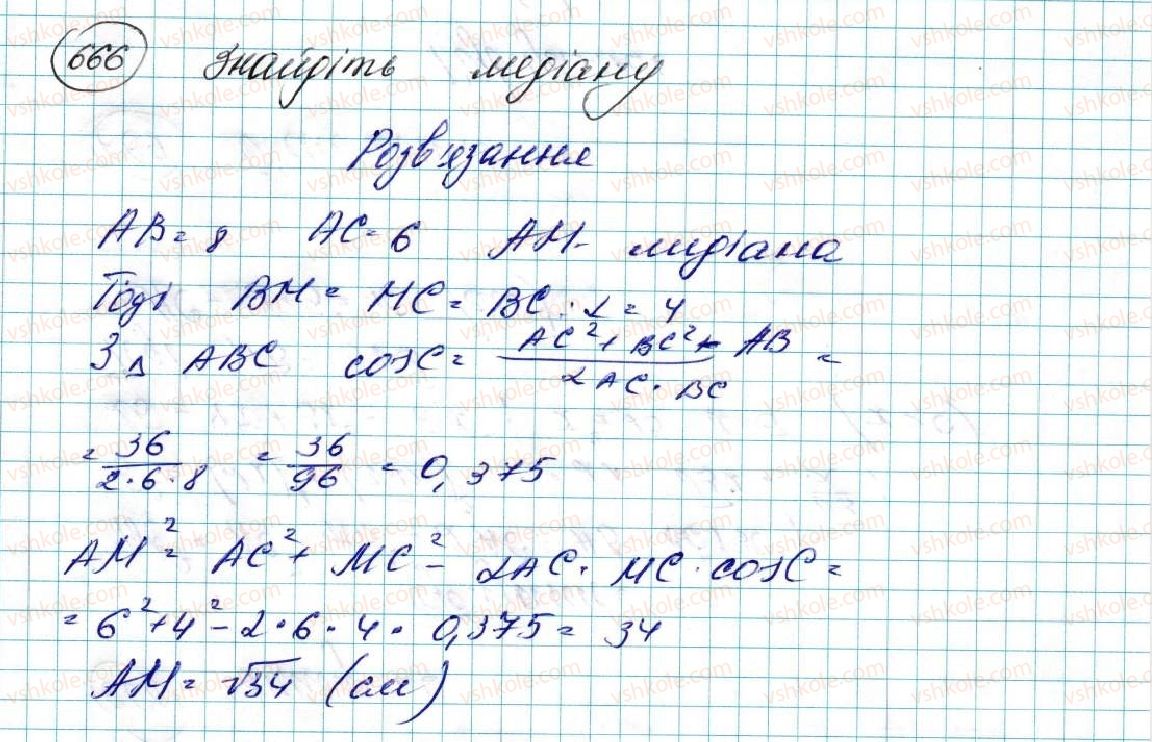 666 Знайдіть медіану
Розв'язання
AB = 8 AC = 6 AM - медіана
Тоді BM = MC = BC : 2 = 4
З Δ ABC cosC = (AC² + BC² - AB) / (2AC · BC) =
= 36 / (2·6·8) = 36 / 96 = 0,375
AM² = AC² + MC² - 2AC · MC · cosC =
= 6² + 4² - 2·6·4· 0,375 = 34
AM = √34 (см)
vshkole.com